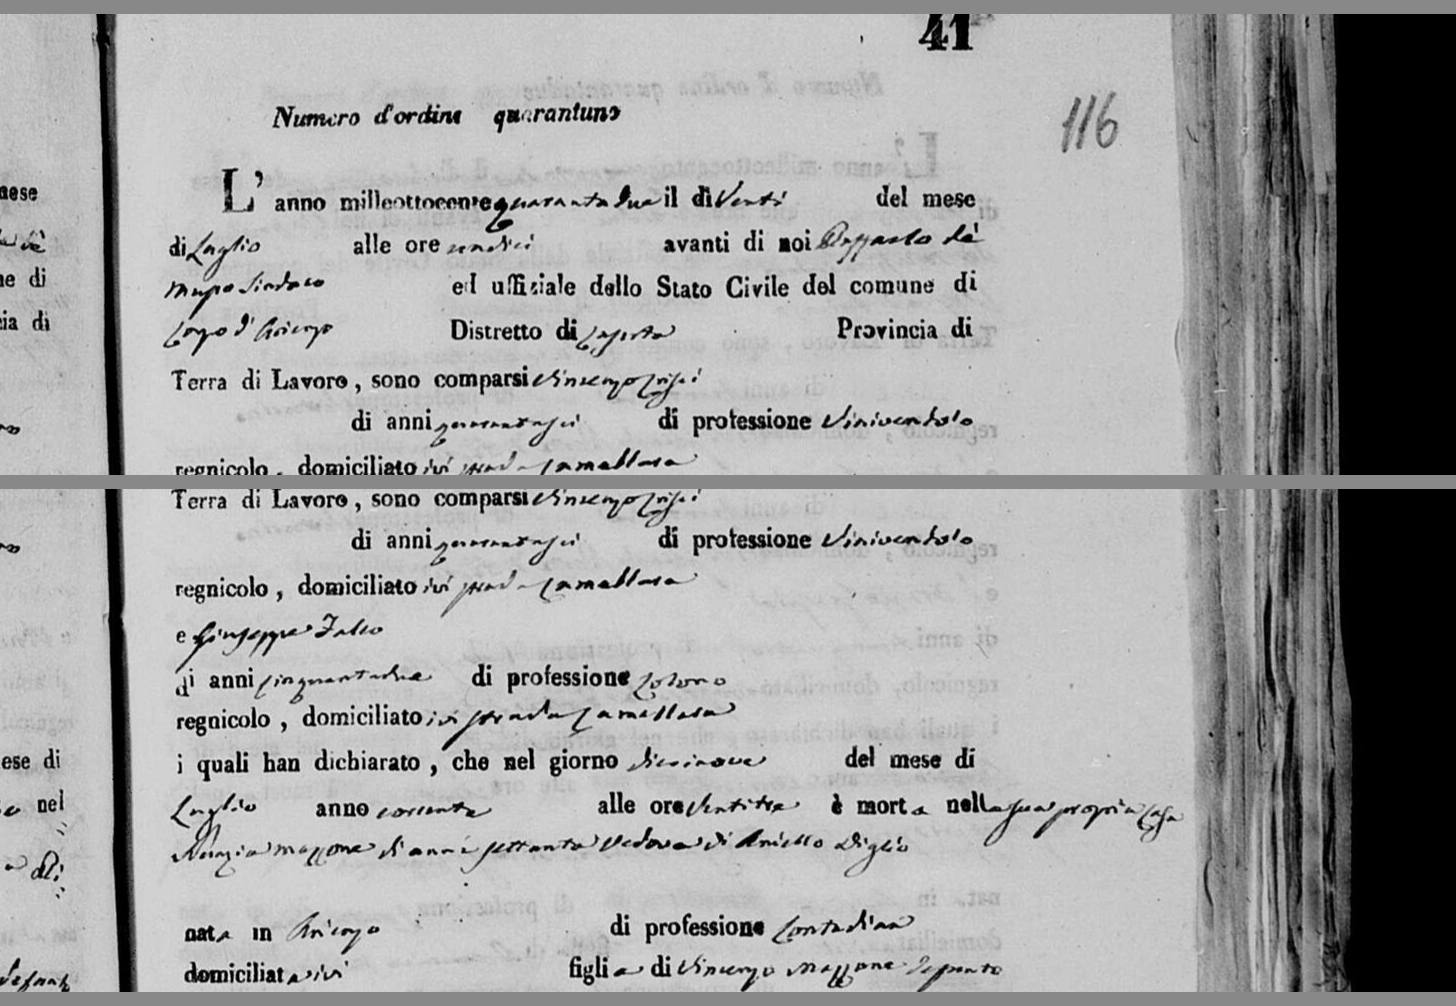 41
116
Numero d'ordine quarantuno
L' anno milleottocentoquaranta due il dì Venti del mese
di Luglio alle ore undici avanti di noi Raffaele de
Mupo Sindaco ed uffiziale dello Stato Civile del comune di
d' Arienzo Distretto di Caserta Provincia di
Terra di Lavoro, sono comparsi Vincenzo Crisci
di anni quarantasei di professione Vinivendolo
regnicolo, domiciliato ivi strada Camellara
Terra di Lavoro, sono comparsi Vincenzo Crisci
di anni quarantasei di professione Vinivendolo
regnicolo, domiciliato ivi strada Camellara
e Giuseppe Falco
di anni cinquantadue di professione Colono
regnicolo, domiciliato ivi strada Camellara
i quali han dichiarato, che nel giorno diecinove del mese di
Luglio anno corrente alle ore Ventitre è morta nella sua propria Casa
Nunzia Mazzone di anni settanta Vedova di Aniello Diglio
nata in Arienzo di professione Contadina
domiciliata ivi figlia di Vincenzo Mazzone